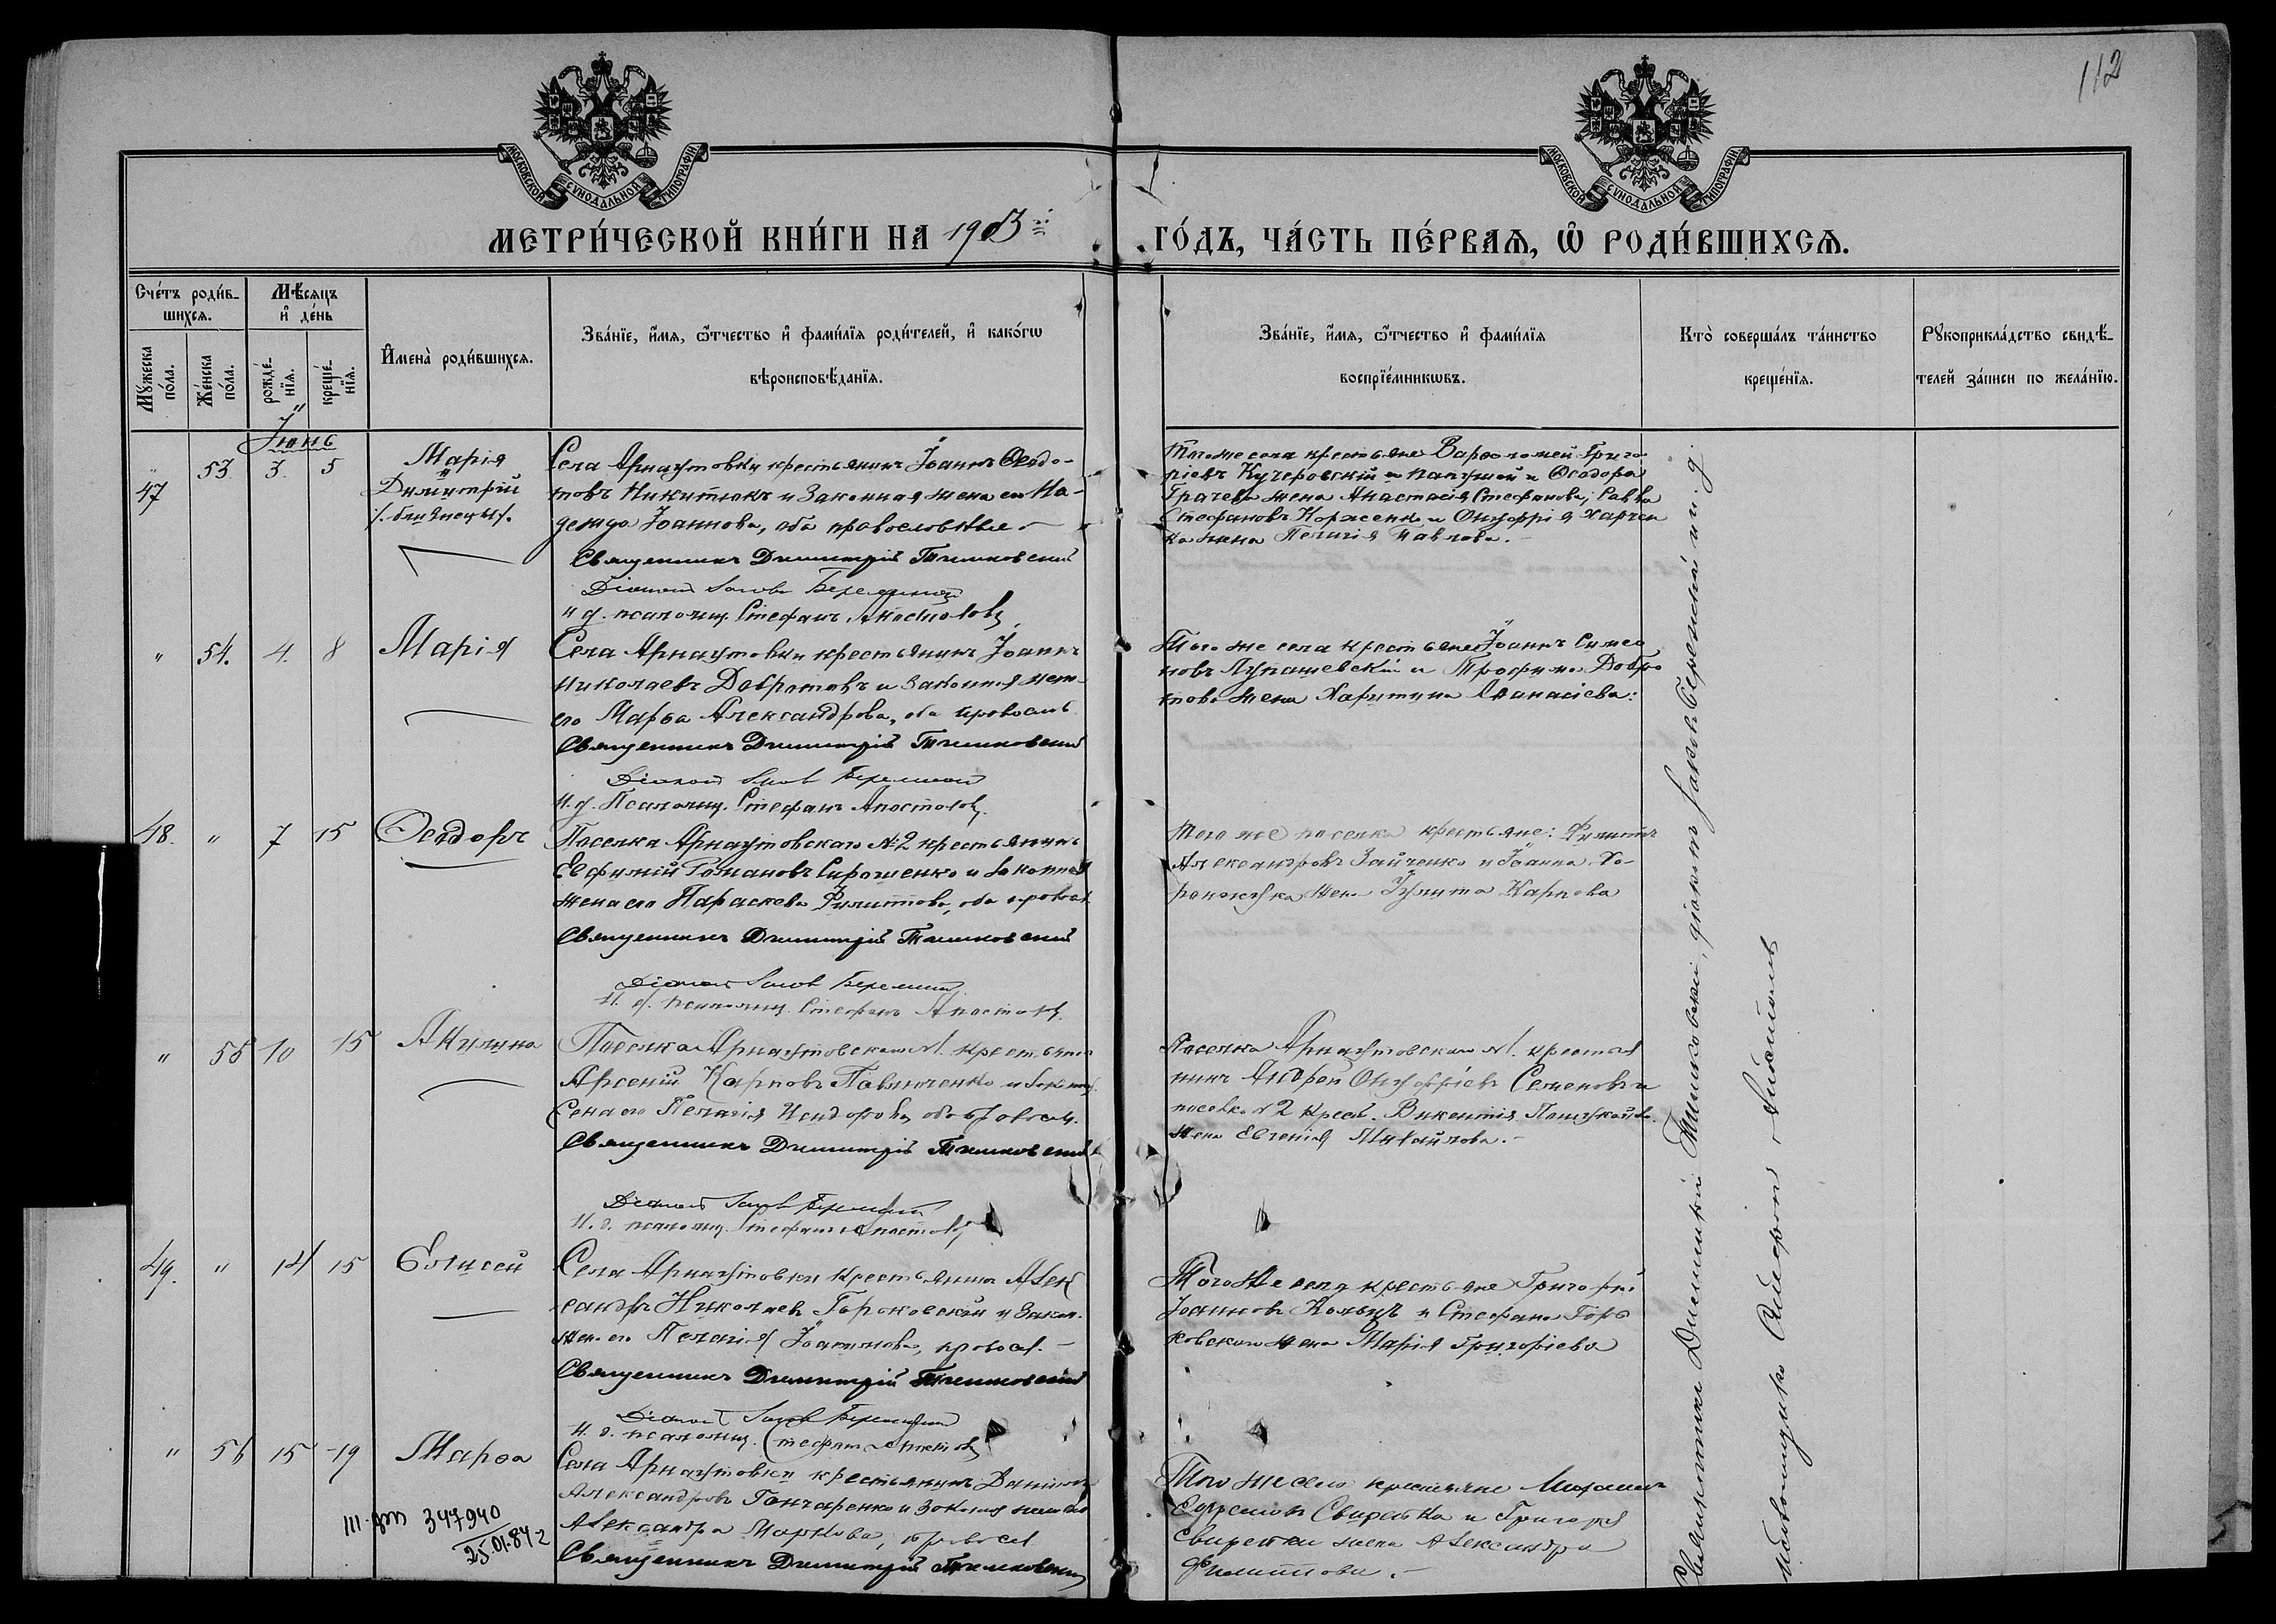 112
МОСКОВСКОЙ СѴНОДАЛЬНОЙ ТИПОГРАФІИ
МОСКОВСКОЙ СѴНОДАЛЬНОЙ ТИПОГРАФІИ
МЕТРИ́ЧЕСКОЙ КНИ́ГИ НА 1903й ГО́ДЪ, ЧА́СТЬ ПЕ́РВАѦ, Ѽ РОДИ́ВШИХСѦ.
Сче́тъ роди́в-
шихсѧ.
Мѣ́сѧцъ
и҆ де́нь
Мꙋ́жеска
по́ла.
Же́нска
по́ла.
рожде́-
нїѧ.
креще́-
нїѧ.
И҆мена̀ роди́вшихсѧ.
Зва́нїе, и҆́мѧ, ѻ҆́тчество и҆ фамі́лїѧ роди́телей, и҆ како́гѡ
вѣроисповѣ́данїѧ.
Зва́нїе, и҆́мѧ, ѻ҆́тчество и҆ фамі́лїѧ
воспрїе́мникѡвъ.
Кто̀ соверша́лъ та́инство
креще́нїѧ.
Рꙋкоприкла́дство свидѣ́-
телей за́писи по жела́нїю.
Іюнь
" 53. 3. 5 Марія
47 Димитрій
/.близнецы/.
Села Арнаутовки крестьянинъ Іоаннъ Ѳеодо-
товъ Никитюкъ и законная жена его На-
дежда Іоаннова, оба православные
Священникъ Димитрій Тимковскій
Діаконъ Іаковъ
и д. псаломщ. Стефанъ Апостоловъ
Тогоже села крестьяне Варѳоломей Григо-
ріевъ Кучеровскій и Ѳеодора
жена Анастасія Стефанова, Савва
Стефановъ и Онуфрія Харчен
ка жена Пелагія Павлова.
" 54. 4. 8 Марія
Села Арнаутовки крестьянинъ Іоаннъ
Николаевъ Добротовъ и законная жена
его Марѳа Александрова, оба правосл
Священникъ Димитрій Тимковскій
Діаконъ Іаковъ
И. д. Псаломщ. Стефанъ Апостоловъ
Того же села крестьяне Іоаннъ Симео
новъ Лупашевскій и Трофима Добро
това жена Харитина Аѳанасіева.
48. " 7 15 Ѳеодоръ
Поселка Арнаутовскаго №2 крестьянинъ
Евфимій Романовъ Сирошенко и законная
жена его Параскева Филиппова, оба правосл.
Священникъ Димитрій Тимковскій
Діаконъ Іаковъ
И. д. псаломщ. Стефанъ Апостоловъ
Того же поселка крестьяне: Филиппъ
Александровъ Зайченко и Іоанна Хо-
ранжука жена Іулита Карпова
" 55 10 15 Акилина
Поселка Арнаутовскаго №1. крестьянинъ
Арсеній Карповъ и законн.
жена его Пелагія Исидорова, оба правосл.
Священникъ Димитрій Тимковскій
Діаконъ Іаковъ
И. д. псаломщ. Стефанъ Апостоловъ
Поселка Арнаутовскаго №1. крестья
нинъ Андрей Онуфріевъ Семеновъ и
поселка №2 крест. Викентія
жена Евгенія Михайлова.
49. " 14 15 Елисей
Села Арнаутовки крестьянинъ Алек
сандръ Николаевъ Горковскій и закон.
жен. его Пелагія, правосл.
Священникъ Димитрій Тимковскій
Діаконъ Іаковъ
И. д. псаломщ. Стефанъ Апостоловъ
Того же села крестьяне Григорій
Іоанновъ и Стефана Гор
ковскаго жена Марія Григоріева
" 56 15 19 Марѳа
Села Арнаутовки крестьянинъ Даніилъ
Александровъ Гончаренко и законная жена его
Александра Маркова, правосл
Священникъ Димитрій Тимковскій
Того же села крестьяне Михаилъ
Ефремовъ и Григорія
жена Александра
Филиппова.
Священникъ Димитрій Тимковскій, діаконъ Іаковъ и и. д.
псаломщика Стефанъ Апостоловъ
347940
25.01.84